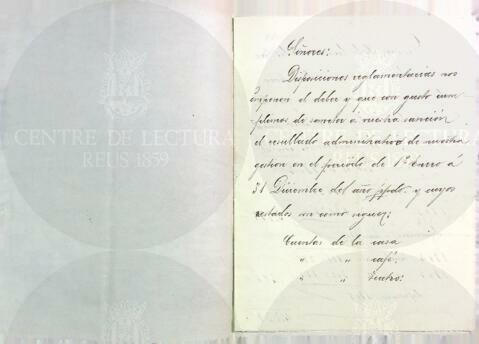 CENTRE DE LECTURA
REUS 1859
CENTRE DE LECTURA
REUS 1859
Señores:
Disposiciones reglamentarias nos
imponen el deber y que con gusto cum-
plimos de someter á vuestra sanción
el resultado administrativo de nuestra
gestion en el período de 1º Enero á
31 Diciembre del año ppdo. y cuyos
estados son como siguen:
Cuentas de la casa
" " café.
" " Teatro: